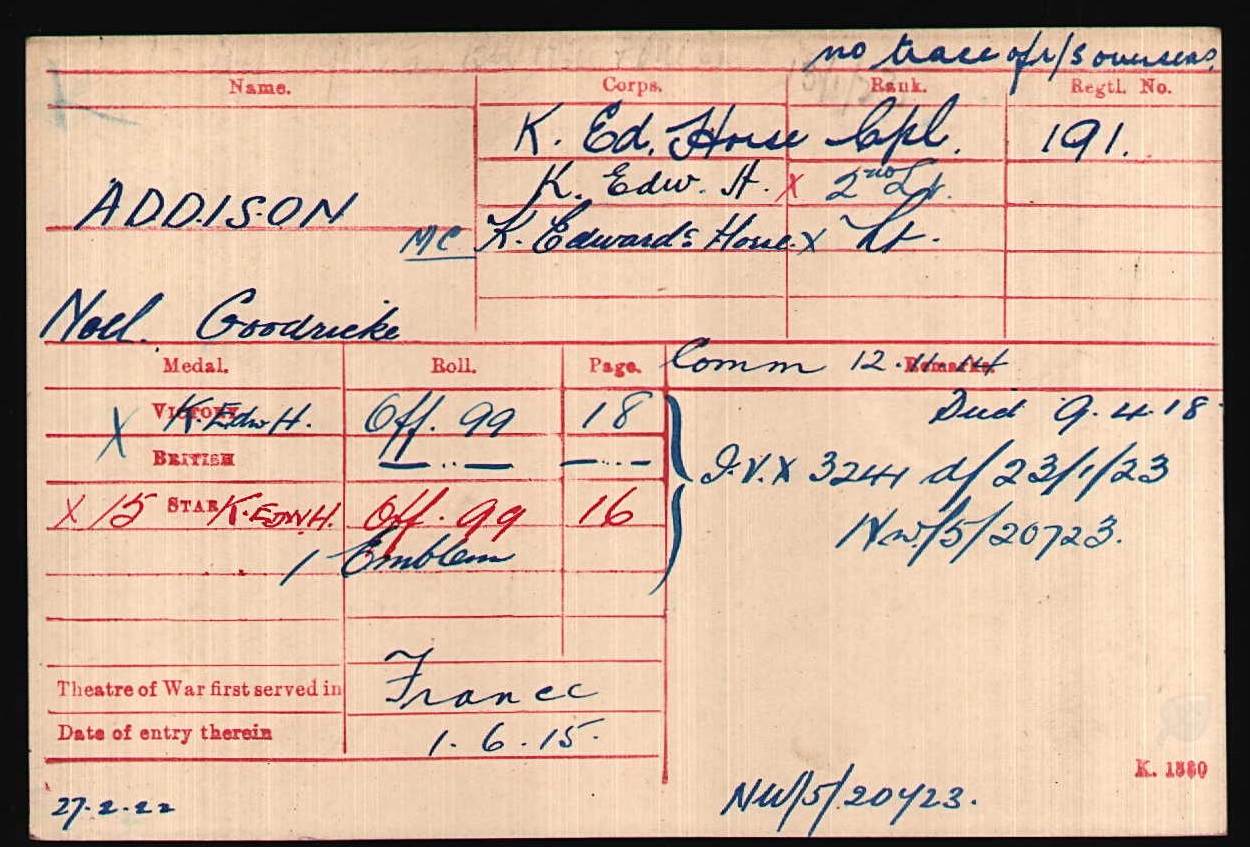 no trace of r/s overseas.
Name. Corps. Rank. Regtl. No.
K. Ed. Horse Cpl. 191.
K. Edw. H. X 2nd Lt.
ADDISON
MC K. Edwards Horse X Lt.
Noel. Goodricke
Medal. Roll. Page. Remarks. Comm 12.11.14
X VICTORY K. Edw H. Off. 99 18 Died 9.4.18
BRITISH — .. — — .. —
I.V.X 3244 d/ 23/1/23
X 15 STAR K. EDW H. Off. 99 16
NW/5/20723.
1 Emblem
Theatre of War first served in France
Date of entry therein 1.6.15.
K. 1380
27-2-22 NW/5/20723.